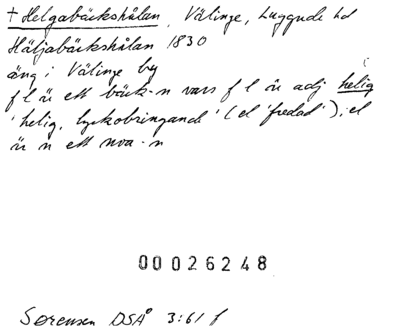 † Helgabäckshålan, Välinge, Luggude hd
Häljabäckshålan 1830
äng i Välinge by
f l är ett bäck-n vars f l är adj helig
'helig, lyckobringande' (el 'fredad'); el
är n ett
00026248
Sørensen DSÅ 3:61 f